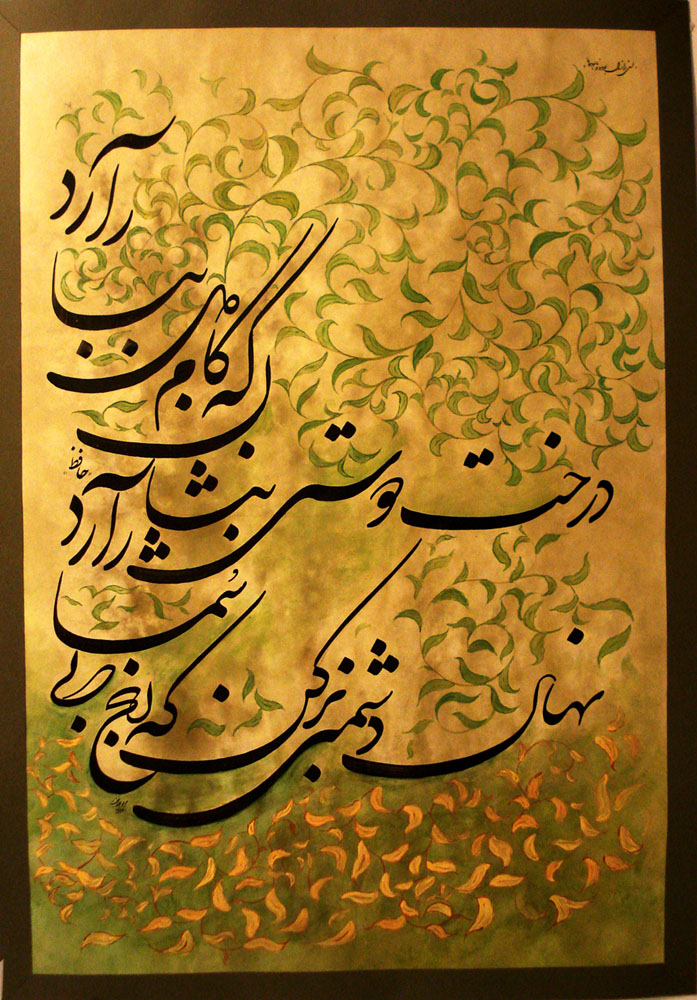 درخت دوستی بنشان که کام دل ببار آرد
نهال دشمنی برکن که رنج بی شمار آرد
حافظ